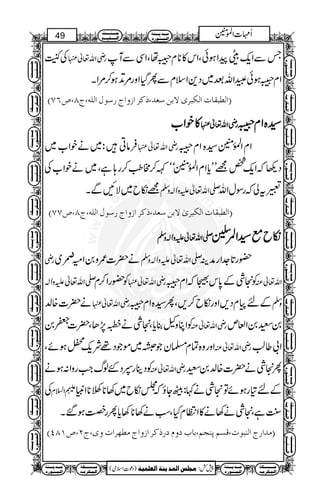 اُمہاتُ المؤمنین
49
جس سے ایک بیٹی پیدا ہوئی، اس کا نام حبیبہ تھا، اسی سے آپ رضی اللہ تعالیٰ عنہا کی کنیت
ام حبیبہ ہوئی عبیداللہ بعد میں دین اسلام سے پھر گیا اور مرتد ہو کر مرا۔
(الطبقات الکبری لابن سعد،ذکر ازواج رسول الله،ج۸،ص۷۶)
سیدہ ام حبیبہ رضی اللہ تعالیٰ عنہا کا خواب
ام المؤمنین سیدہ ام حبیبہ رضی اللہ تعالیٰ عنہا فرماتی ہیں: میں نے خواب میں
دیکھا کہ ایک شخص مجھے ’’یا ام المؤمنین‘‘ کہہ کر مخاطب کر رہا ہے، میں نے خواب کی یہ
تعبیر لی کہ رسول اللہ صلی اللہ تعالیٰ علیہ والہ وسلم مجھے نکاح میں لائیں گے۔
(الطبقات الکبری لابن سعد،ذکر ازواج رسول الله،ج۸،ص۷۷)
نکاح مع سید المرسلین صلی اللہ تعالیٰ علیہ والہ وسلم
حضور تاجدار مدینہ صلی اللہ تعالیٰ علیہ والہ وسلم نے حضرت عمرو بن امیہ ضمری رضی
اللہ تعالیٰ عنہ کو نجاشی کے پاس بھیجا کہ ام حبیبہ رضی اللہ تعالیٰ عنہا کو حضور اکرم صلی اللہ تعالیٰ علیہ والہ
وسلم کے لئے پیام دیں اور نکاح کریں، پھر سیدہ ام حبیبہ رضی اللہ تعالیٰ عنہا نے حضرت خالد
بن سعید بن العاص رضی اللہ تعالیٰ عنہ کو اپنا وکیل بنایا، نجاشی نے خطبہ پڑھا، حضرت جعفر بن
ابی طالب رضی اللہ تعالیٰ عنہ اور وہ تمام مسلمان جو حبشہ میں موجود تھے شریک محفل ہوئے،
پھر نجاشی نے حضرت خالد بن سعید رضی اللہ تعالیٰ عنہ کو دینار سپرد کئے لوگ جب روانہ ہونے
کے لئے تیار ہوئے تو نجاشی نے کہا: بیٹھ جاؤ کیونکہ مجلس نکاح میں کھانا کھلانا انبیاء علیہم السلام کی
سنت ہے، نجاشی نے کھانے کا انتظام کیا، سب نے کھانا کھایا پھر رخصت ہو گئے۔
(مدارج النبوت،قسم پنجم،باب دوم درذکر ازواج مطہرات وی،ج۲،ص۴۸۱)
پیش کش: مجلس المدینة العلمیة (دعوتِ اسلامی)